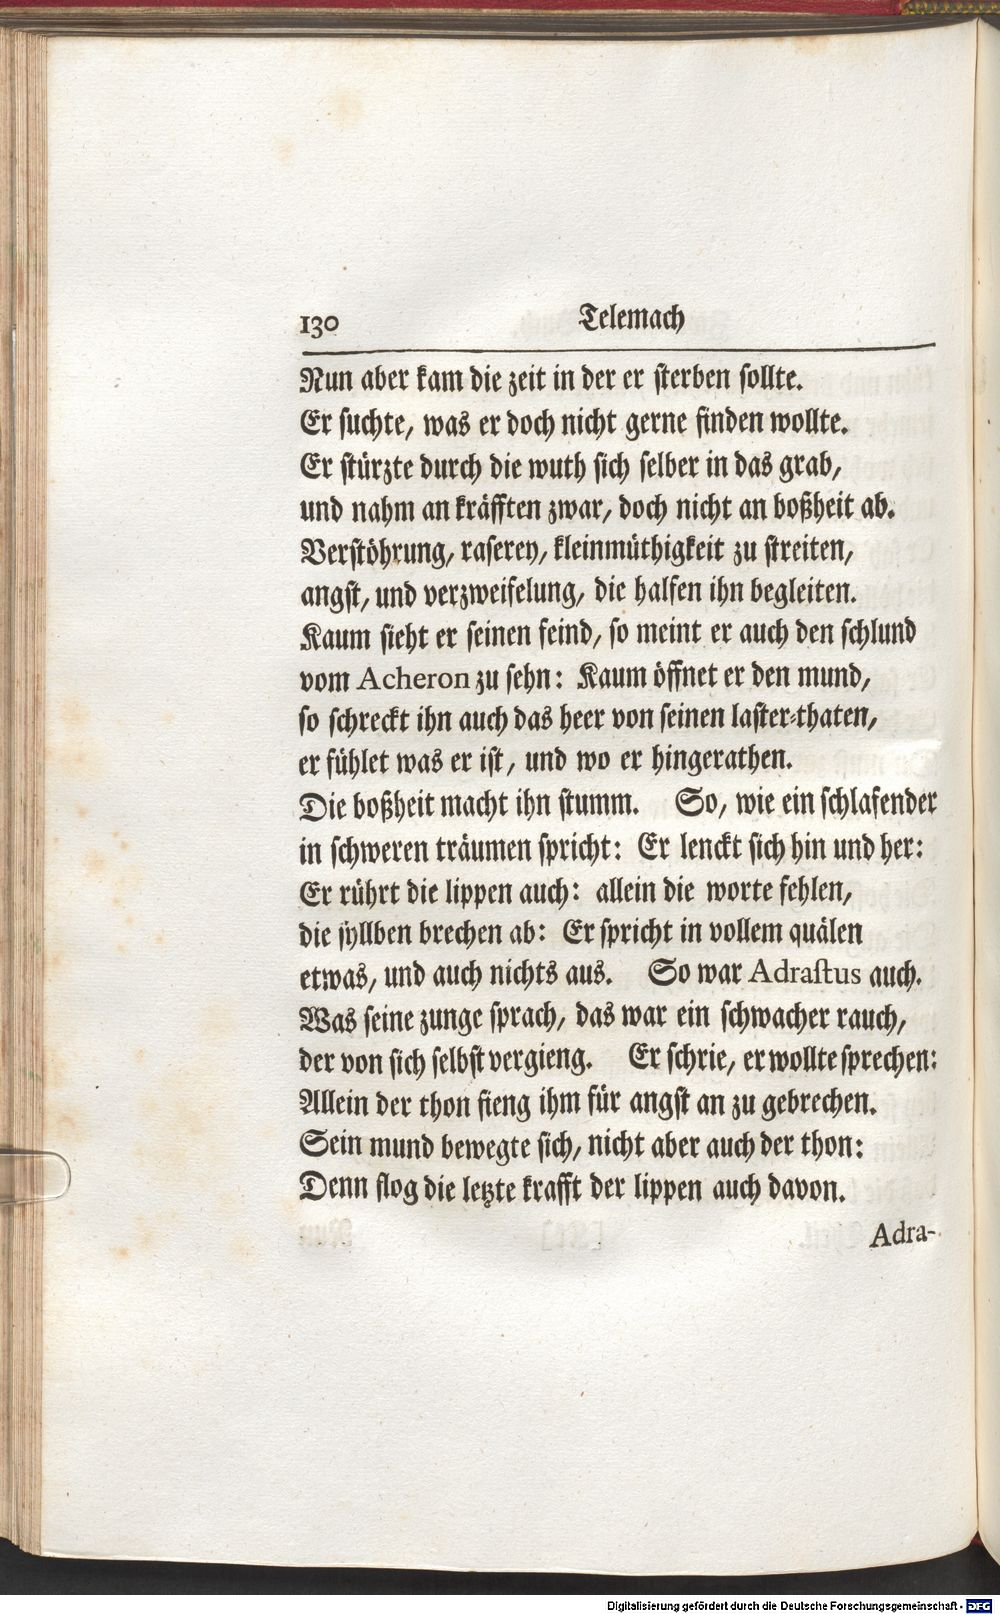 130 Telemach
Nun aber kam die zeit in der er sterben sollte.
Er suchte, was er doch nicht gerne finden wollte.
Er stürzte durch die wuth sich selber in das grab,
und nahm an kräfften zwar, doch nicht an boßheit ab.
Verstöhrung, raserey, kleinmüthigkeit zu streiten,
angst, und verzweifelung, die halfen ihn begleiten.
Kaum sieht er seinen feind, so meint er auch den schlund
vom Acheron zu sehn: Kaum öffnet er den mund,
so schreckt ihn auch das heer von seinen laster-thaten,
er fühlet was er ist, und wo er hingerathen.
Die boßheit macht ihn stumm. So, wie ein schlafender
in schweren träumen spricht: Er lenckt sich hin und her:
Er rührt die lippen auch: allein die worte fehlen,
die syllben brechen ab: Er spricht in vollem quälen
etwas, und auch nichts aus. So war Adrastus auch.
Was seine zunge sprach, das war ein schwacher rauch,
der von sich selbst vergieng. Er schrie, er wollte sprechen:
Allein der thon fieng ihm für angst an zu gebrechen.
Sein mund bewegte sich, nicht aber auch der thon:
Denn flog die letzte krafft der lippen auch davon.
Adra-
Digitalisierung gefördert durch die Deutsche Forschungsgemeinschaft - DFG